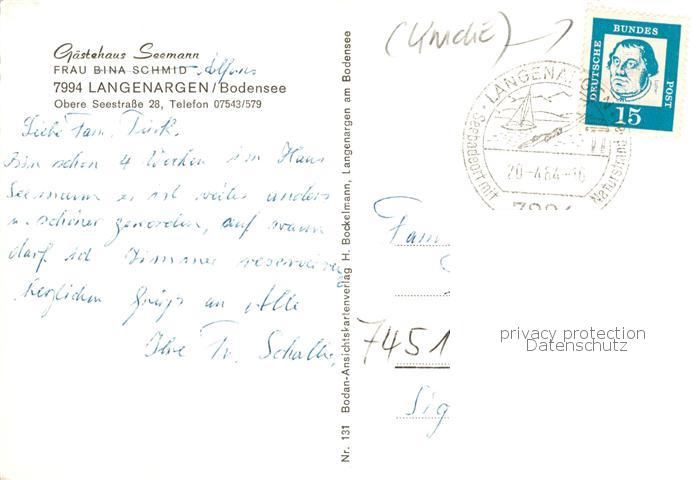 Gästehaus Seemann
FRAU BINA SCHMID - Alfons
7994 LANGENARGEN/Bodensee
Obere Seestraße 28, Telefon 07543/579
Liebe Fam. Türk.
Bin schon 4 Wochen im Haus
Seemann es ist vieles anders
u. schöner geworden, auf wann
darf ich Zimmer reservieren
herzlichen Grüße an Alle
Ihre Fr.
Nr. 131 Bodan-Ansichtskartenverlag H. Bockelmann, Langenargen am Bodensee
DEUTSCHE BUNDES POST
15
LANGENAR
Seebadeort mit
20-4.64-16
7994
Fam
7451
Sig
privacy protection
Datenschutz